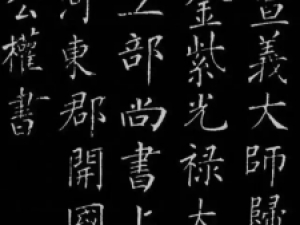 宣義大師歸
金紫光祿大
工部尚書上
河東郡開國
公權書